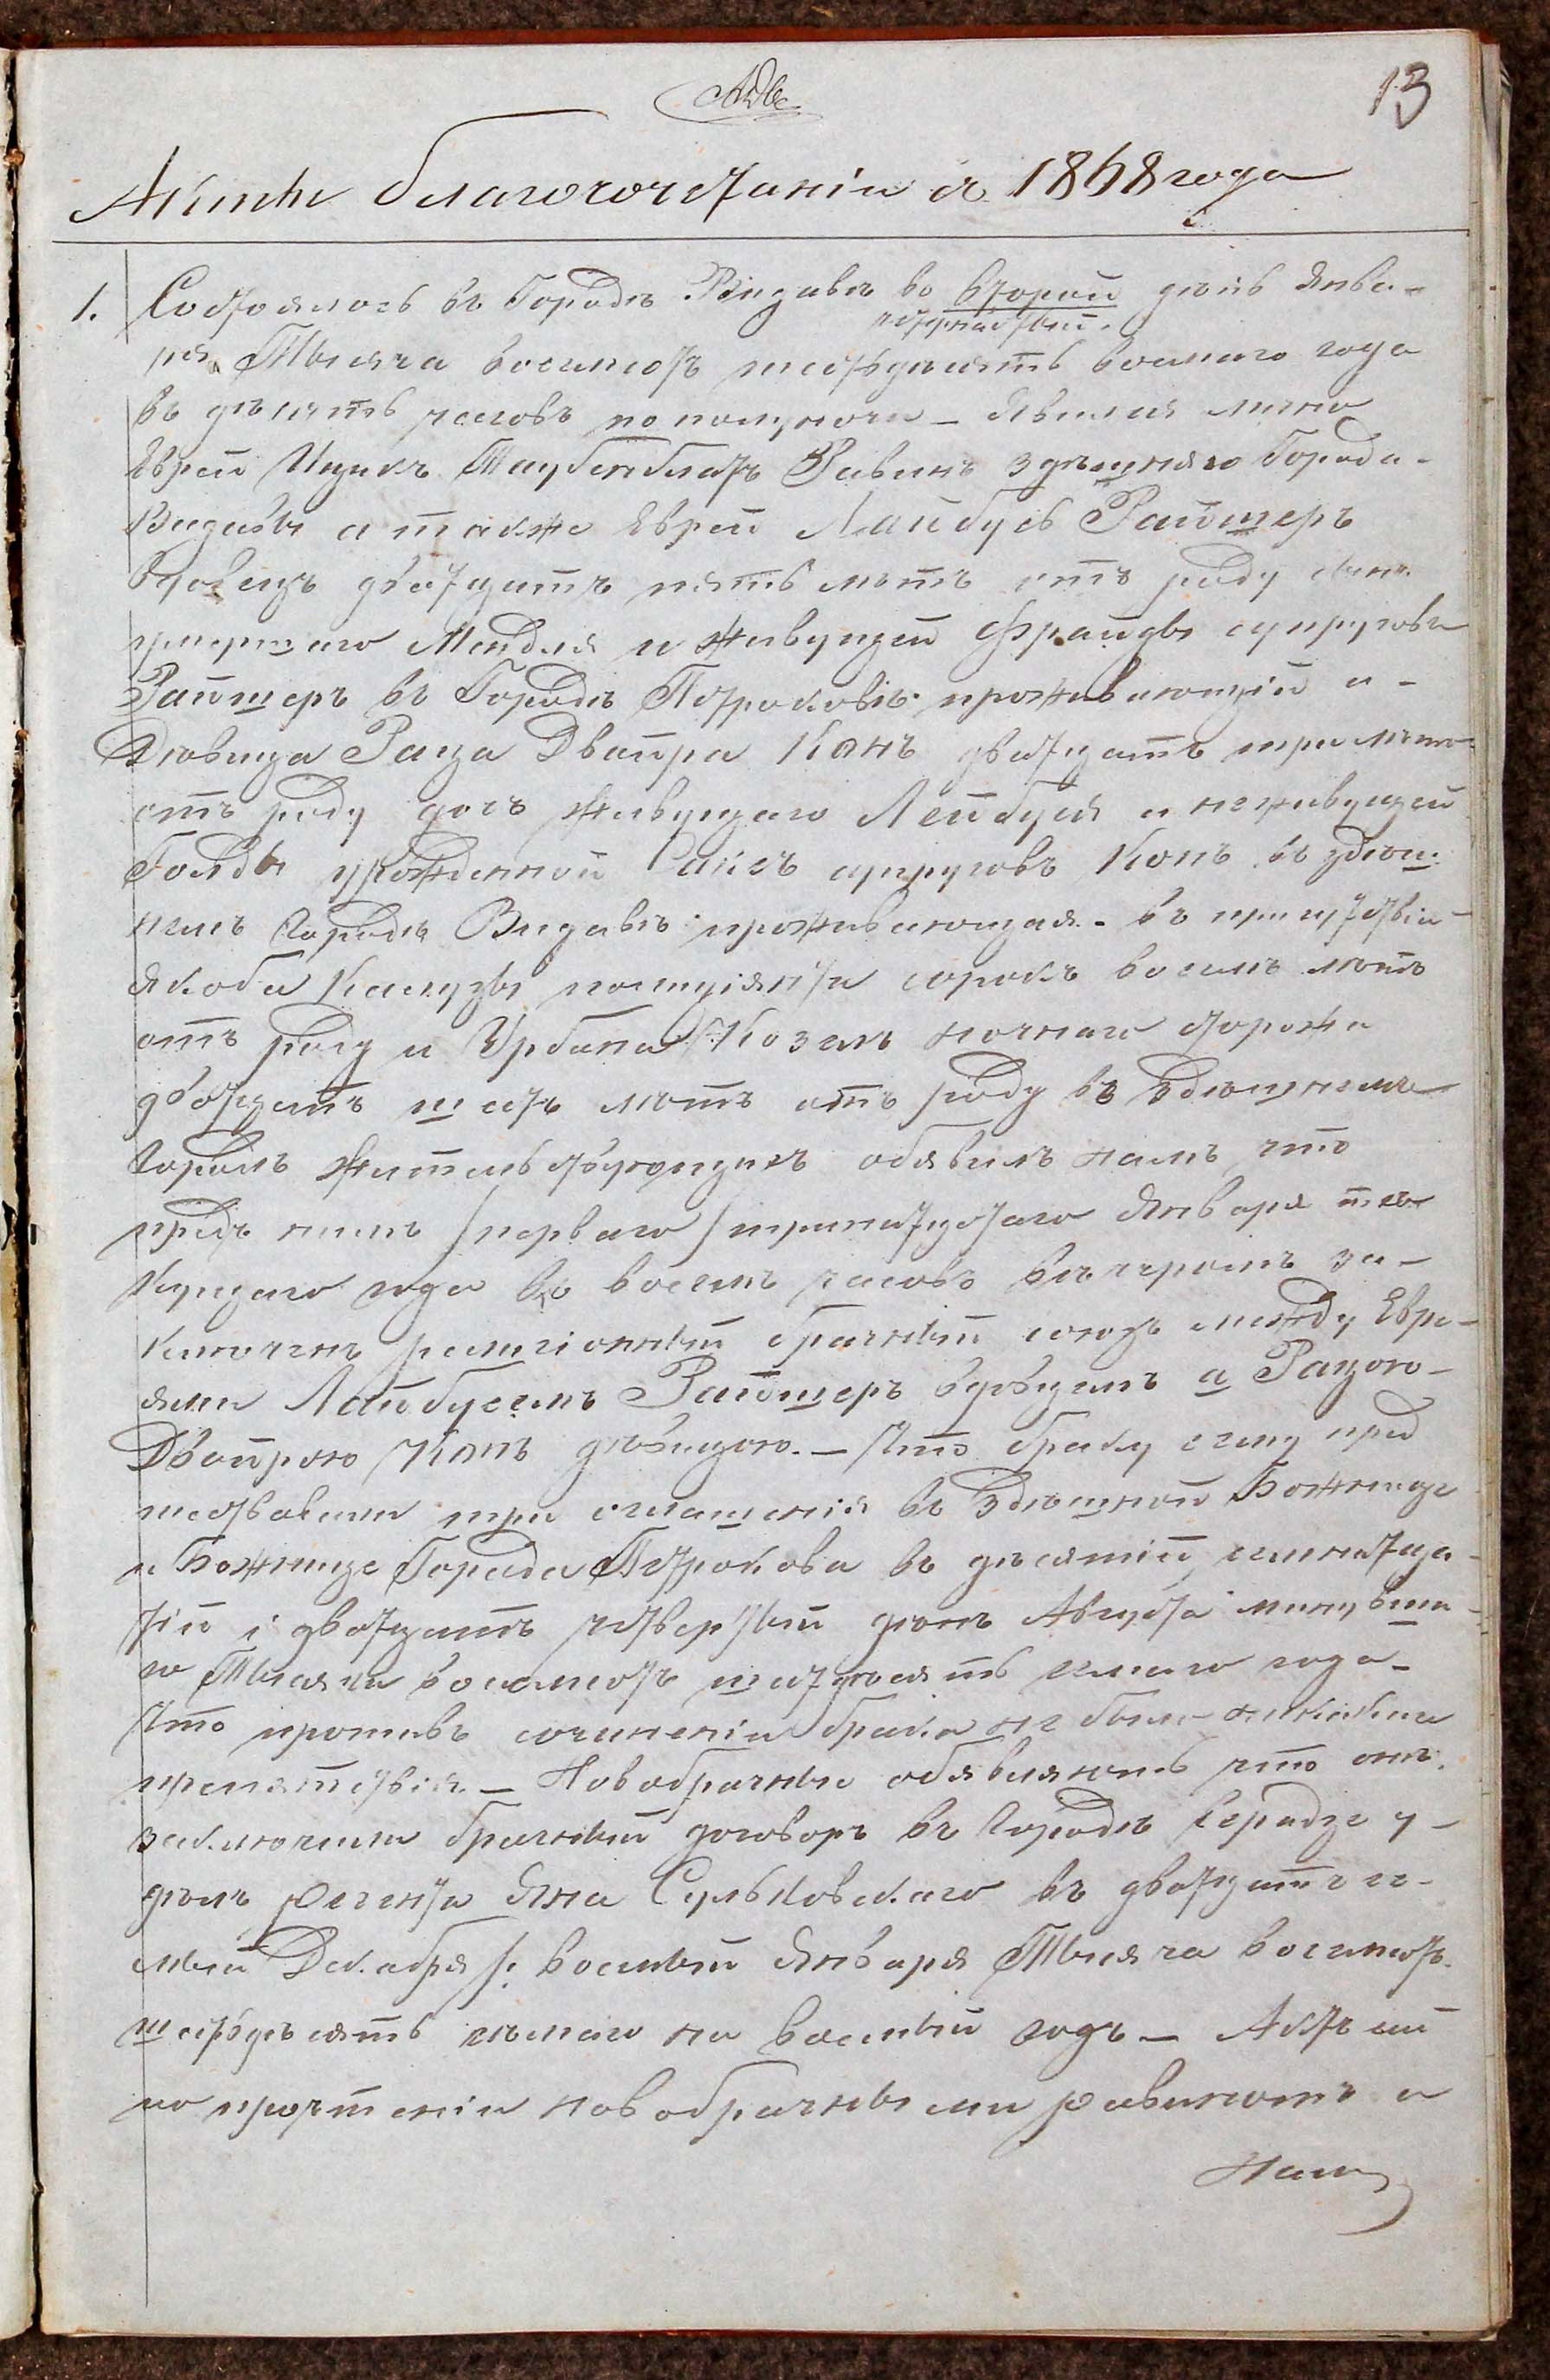 13
Акты благосочетанія съ 1868 года
1. Состоялось въ Городѣ Видавѣ во второй день Янва-
четырнадцатый
ря Тысяча восемсотъ шестдесятъ восмаго года
въ десять часовъ по полуночи – явился лично
Еврей Ицикъ Таубенблатъ Равинъ здѣшняго Города
Видавы а также Еврей Лайбусь Райтеръ
вдовецъ двадцать пять лѣтъ отъ роду сынъ
умершаго Мендля и живущей Фрайды супруговъ
Райтеръ въ Городѣ Петроковѣ проживающій и –
Дѣвица Раца Двайра Конъ двадцать три лѣтъ
отъ роду дочь живущаго Лейбуся и неживущей
Голды урожденной супруговъ Конъ въ здѣш-
немъ Городѣ Видавѣ проживающая – въ присутствіи
Якоба полиціянта сорокъ восемь лѣтъ
отъ роду и Урбана Козелъ ночнаго сторожа
двадцать шесть лѣтъ отъ роду въ здѣшнемъ
Городѣ жительствующихъ объявилъ намъ что
предъ нимъ /перваго/ тринадцатаго Января те-
кущаго года въ восемъ часовъ вечеромъ за-
ключенъ религіонный брачный союзъ между Евре-
ями Лайбусемъ Райтеръ вдовцемъ а Рацою
Двайрою Конъ дѣвицою. – Что браку сему пред
шествовали три оглашенія въ здѣшной Божнице
и Божнице Города Петрокова въ десятый, семнадца-
тый і двадцать четвертый день Августа минувша-
го Тысяча восемсотъ шестдесятъ семаго года –
Что противъ сочиненіи брака не было никакихъ
препятствія – Новобрачные объявляютъ что они
заключили брачный договоръ въ Городѣ Серадзе у –
дѣлъ регента Яна Сульковскаго въ двадцать се-
мый Декабря /: восмый Января Тысяча восемсотъ
шестдесятъ семаго на восмый годъ – Актъ сей
по прочтеніи новобрачными равиномъ и
Нами